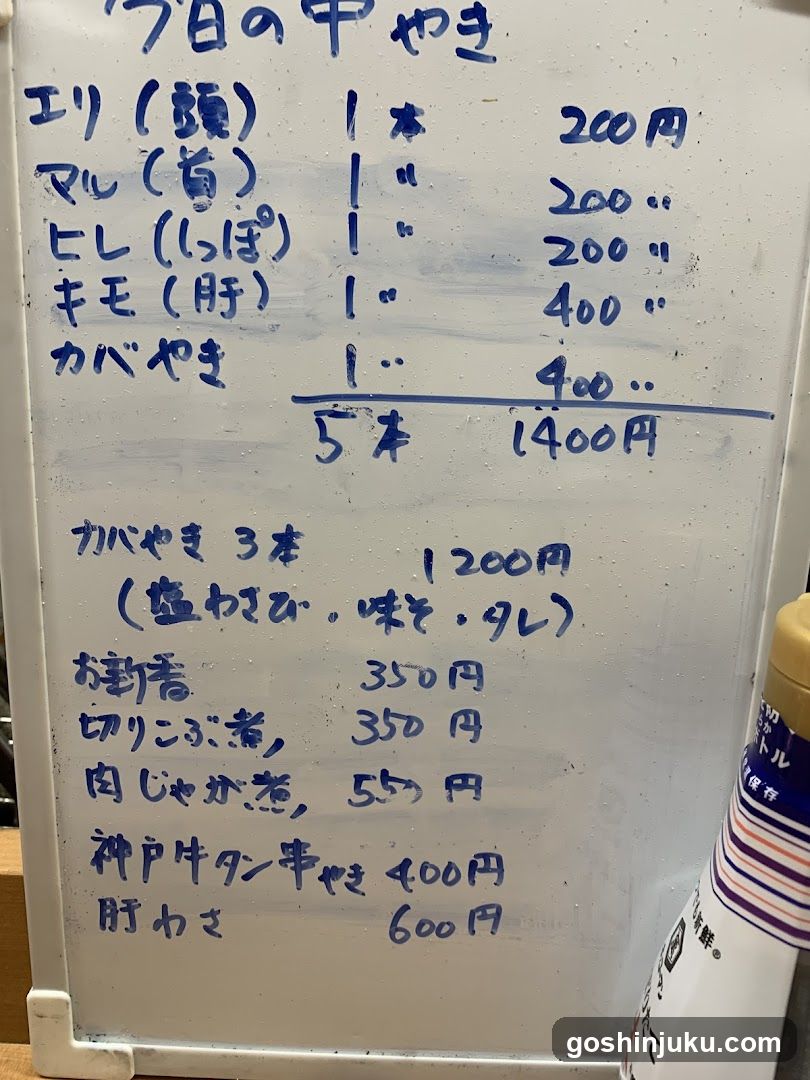 今日の串やき
エリ(頭) 1本 200円
マル(首) 1〃 200〃
ヒレ(しっぽ) 1〃 200〃
キモ(肝) 1〃 400〃
カバやき 1〃 400〃
5本 1400円
カバやき 3本 1200円
(塩わさび・味そ・タレ)
お新香 350円
切りこぶ煮, 350円
肉じゃが煮, 550円
神戸牛タン串やき 400円
肝わさ 600円
トル
保存
新鮮®
goshinjuku.com